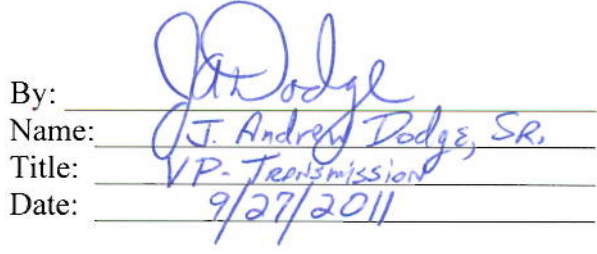 By: JADodge
Name: J. Andrew Dodge, SR.
Title: VP- Transmission
Date: 9/27/2011